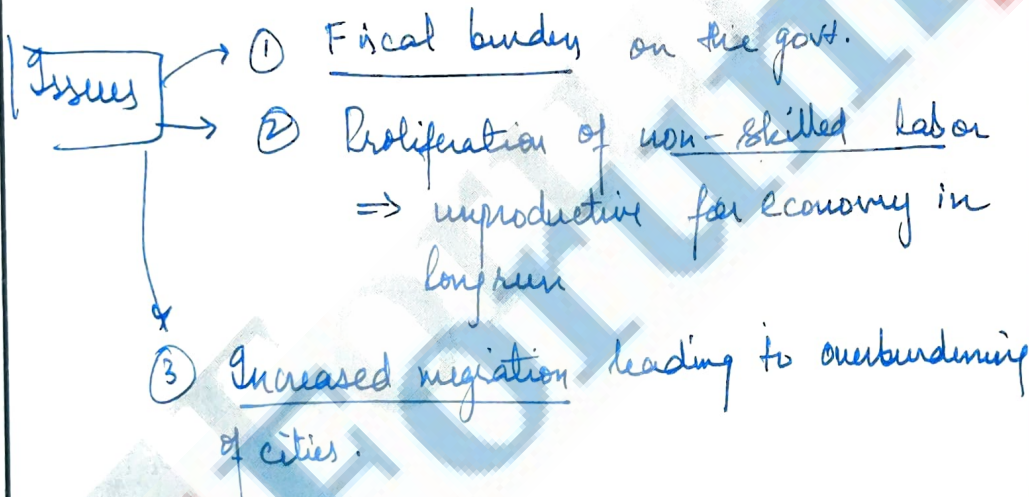 Issues
① Fiscal burden on the govt.
② Proliferation of non-skilled labor
⇒ unproductive for economy in
long run
③ Increased migration leading to overburdening
of cities.
Forum